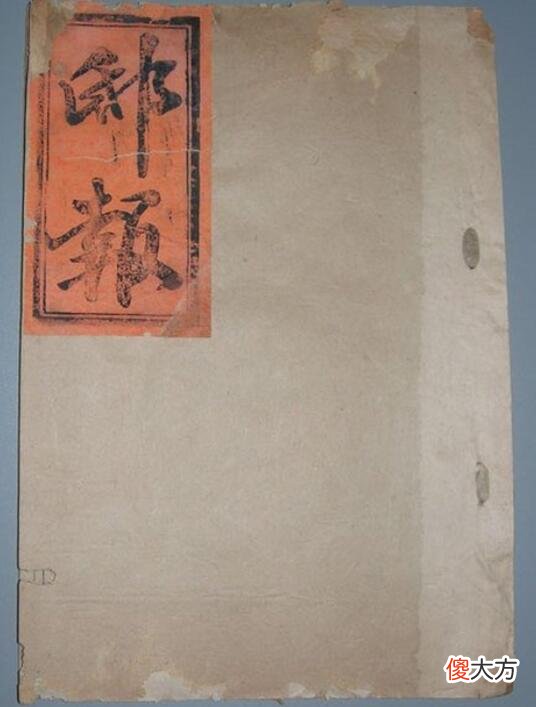 邸報
傻大方